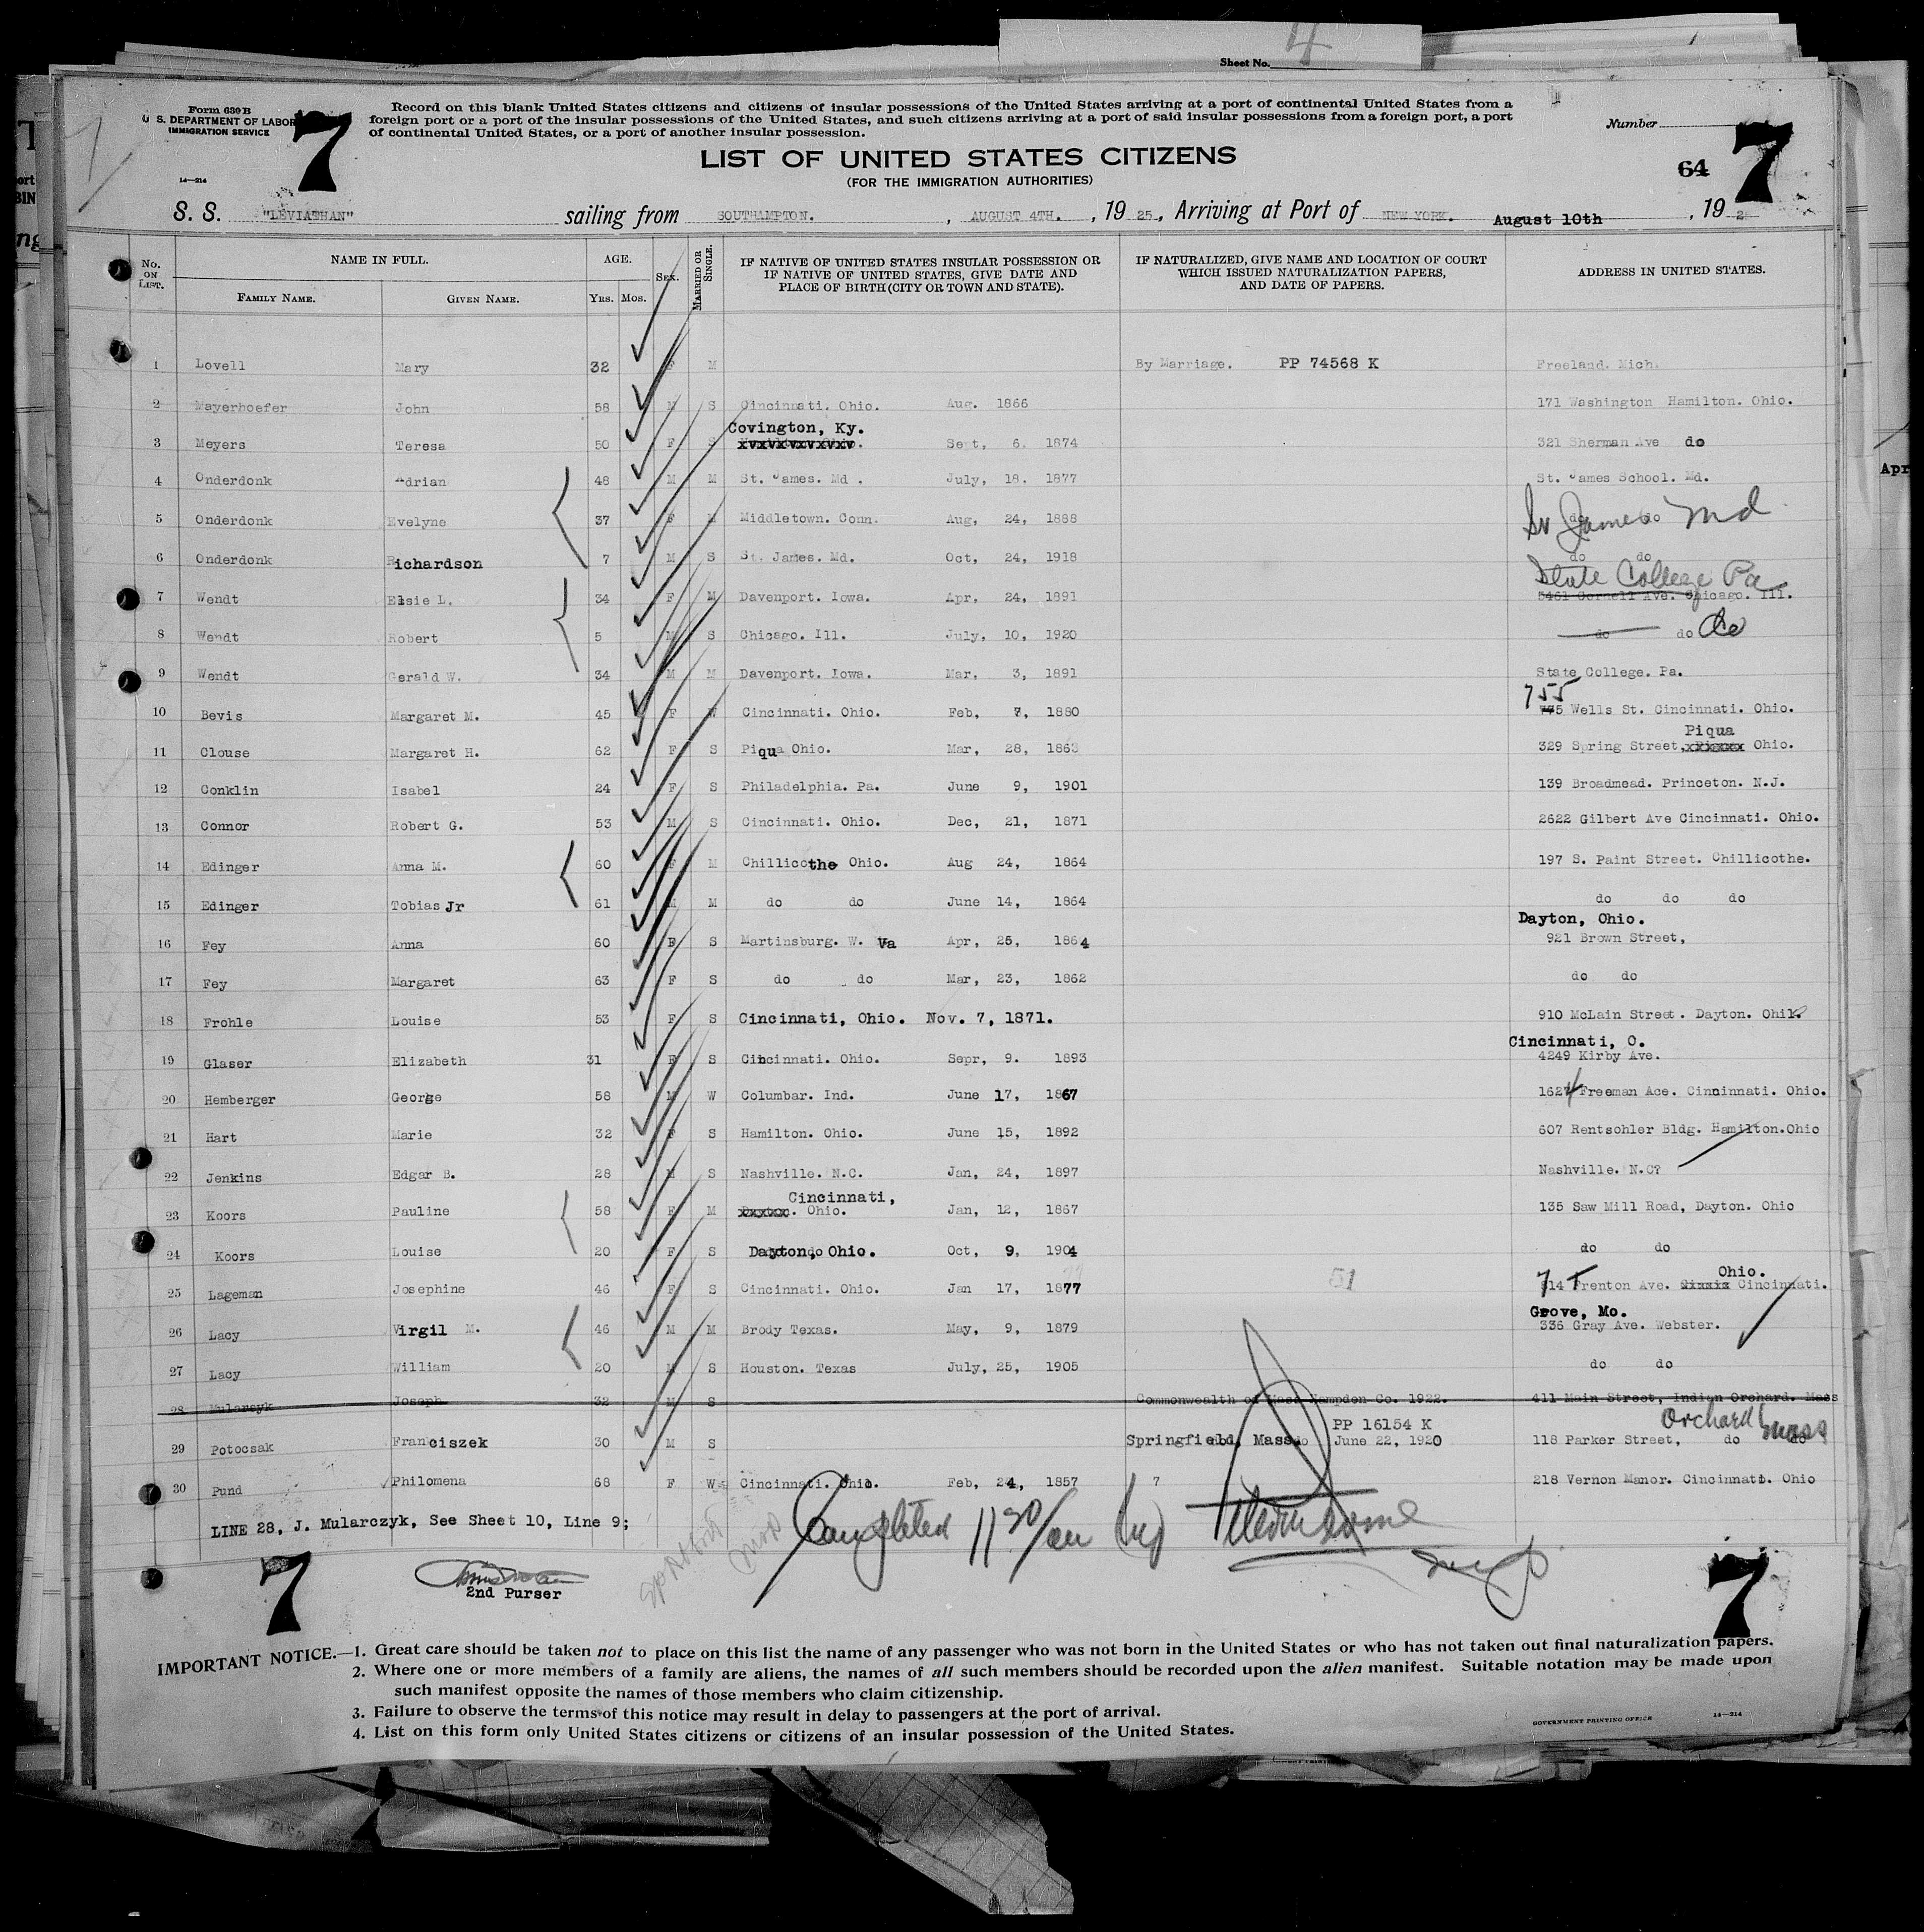 4
Sheet No.
Form 630 B
U. S. DEPARTMENT OF LABOR
IMMIGRATION SERVICE
14—214
7
Record on this blank United States citizens and citizens of insular possessions of the United States arriving at a port of continental United States from a
foreign port or a port of the insular possessions of the United States, and such citizens arriving at a port of said insular possessions from a foreign port, a port
of continental United States, or a port of another insular possession.
Number
64 7
LIST OF UNITED STATES CITIZENS
(FOR THE IMMIGRATION AUTHORITIES)
S. S. "LEVIATHAN" sailing from SOUTHAMPTON. , AUGUST 4TH. , 19 25., Arriving at Port of NEW YORK. August 10th , 19 2
No. ON LIST. NAME IN FULL. FAMILY NAME. GIVEN NAME. AGE. YRS. MOS. SEX. MARRIED OR SINGLE. IF NATIVE OF UNITED STATES INSULAR POSSESSION OR IF NATIVE OF UNITED STATES, GIVE DATE AND PLACE OF BIRTH (CITY OR TOWN AND STATE). IF NATURALIZED, GIVE NAME AND LOCATION OF COURT WHICH ISSUED NATURALIZATION PAPERS, AND DATE OF PAPERS. ADDRESS IN UNITED STATES.
1 Lovell Mary 32 F M By Marriage. PP 74568 K Freeland. Mich.
2 Mayerhoefer John 58 M S Cincinnati. Ohio. Aug. 1866 171 Washington Hamilton. Ohio.
Covington, Ky.
3 Meyers Teresa 50 F S Sept, 6, 1874 321 Sherman Ave do
4 Onderdonk Adrian 48 M M St. James. Md. July, 18, 1877 St. James School. Md.
5 Onderdonk Evelyne 37 F M Middletown. Conn. Aug, 24, 1888 do do St James Md
6 Onderdonk Richardson 7 M S St. James. Md. Oct, 24, 1918 do do
State College Pa
7 Wendt Elsie L. 34 F M Davenport. Iowa. Apr, 24, 1891 5461 Cornell Ave. Chicago. Ill.
8 Wendt Robert 5 M S Chicago. Ill. July, 10, 1920 do do do
9 Wendt Gerald W. 34 M M Davenport. Iowa. Mar, 3, 1891 State College. Pa.
755
10 Bevis Margaret M. 45 F W Cincinnati. Ohio. Feb, 7, 1880 Wells St. Cincinnati. Ohio.
Piqua
11 Clouse Margaret H. 62 F S Piqua Ohio. Mar, 28, 1863 329 Spring Street, xxxxxx Ohio.
12 Conklin Isabel 24 F S Philadelphia. Pa. June 9, 1901 139 Broadmead. Princeton. N.J.
13 Connor Robert G. 53 M S Cincinnati. Ohio. Dec, 21, 1871 2622 Gilbert Ave Cincinnati. Ohio.
14 Edinger Anna M. 60 F M Chillicothe Ohio. Aug 24, 1864 197 S. Paint Street. Chillicothe.
15 Edinger Tobias Jr 61 M M do do June 14, 1864 do do do
Dayton, Ohio.
16 Fey Anna 60 F S Martinsburg. W. Va Apr, 25, 1864 921 Brown Street,
17 Fey Margaret 63 F S do do Mar, 23, 1862 do do
18 Frohle Louise 53 F S Cincinnati, Ohio. Nov. 7, 1871. 910 McLain Street. Dayton. Ohio
Cincinnati, O.
19 Glaser Elizabeth 31 F S Cincinnati. Ohio. Sepr, 9. 1893 4249 Kirby Ave.
20 Hemberger George 58 M W Columbar. Ind. June 17, 1867 1624 Freeman Ace. Cinninnati. Ohio.
21 Hart Marie 32 F S Hamilton. Ohio. June 15, 1892 607 Rentsohler Bldg. Hamilton.Ohio
22 Jenkins Edgar B. 28 M S Nashville. N.C. Jan, 24, 1897 Nashville. N.C?
Cincinnati,
23 Koors Pauline 58 F M xxxxxx. Ohio. Jan, 12, 1867 135 Saw Mill Road, Dayton. Ohio
24 Koors Louise 20 F S Dayton, Ohio. Oct, 9, 1904 do do
51
Ohio.
25 Lageman Josephine 46 F S Cincinnati. Ohio. Jan 17, 1877 714 Trenton Ave. Cincinnati.
Grove, Mo.
26 Lacy Virgil M. 46 M M Brody Texas. May, 9, 1879 336 Gray Ave. Webster.
27 Lacy William 20 M S Houston. Texas July, 25, 1905 do do
28 Mularcyk Joseph 32 M S Commonwealth of Mass Hampden Co. 1922. 411 Main Street, Indian Orchard. Mass
PP 16154 K Orchard Mass
29 Potocsak Franciszek 30 M S Springfield, Mass. do June 22, 1920 118 Parker Street, do do
30 Pund Philomena 68 F W Cincinnati. Ohio. Feb, 24, 1857 7 218 Vernon Manor. Cincinnati. Ohio
LINE 28, J. Mularczyk, See Sheet 10, Line 9;
Completed 11 30/am
Insp
2nd Purser
7 7
IMPORTANT NOTICE.—1. Great care should be taken not to place on this list the name of any passenger who was not born in the United States or who has not taken out final naturalization papers.
2. Where one or more members of a family are aliens, the names of all such members should be recorded upon the alien manifest. Suitable notation may be made upon
such manifest opposite the names of those members who claim citizenship.
3. Failure to observe the terms of this notice may result in delay to passengers at the port of arrival.
4. List on this form only United States citizens or citizens of an insular possession of the United States.
GOVERNMENT PRINTING OFFICE 14—214
Apr